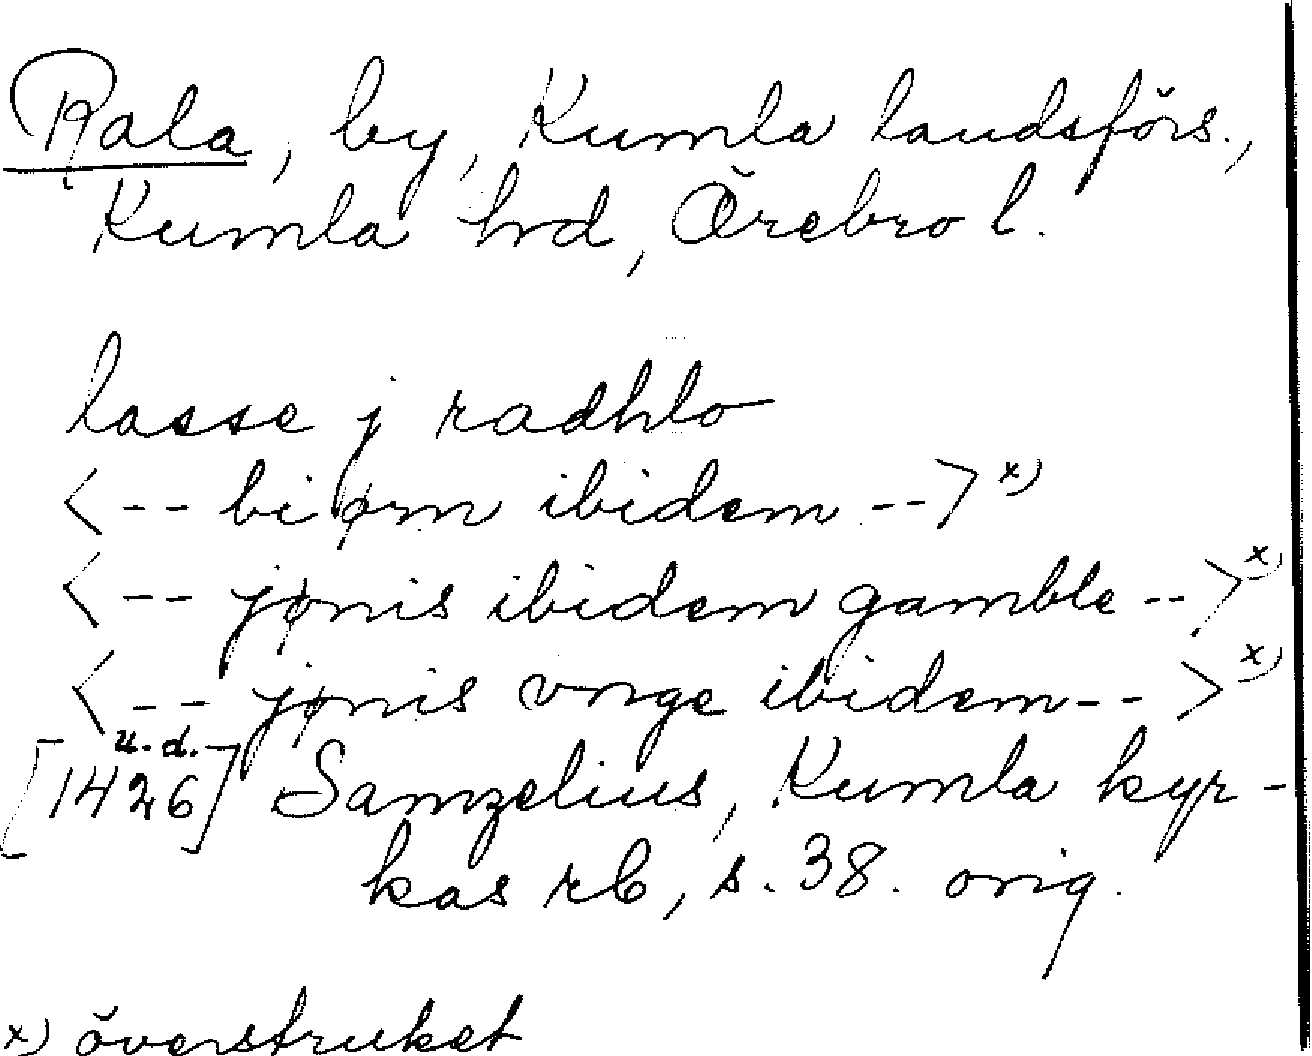 Rala, by, Kumla landsförs.,
Kumla hd, Örebro l.
lasse j radhlo
<-- biørn ibidem -->x)
<-- jønis ibidem gamble -->x)
<-- jønis vnge ibidem -->x)
u.d.
[1426] Samzelius, Kumla kyr-
kas rb, s. 38. orig.
x) överstruket